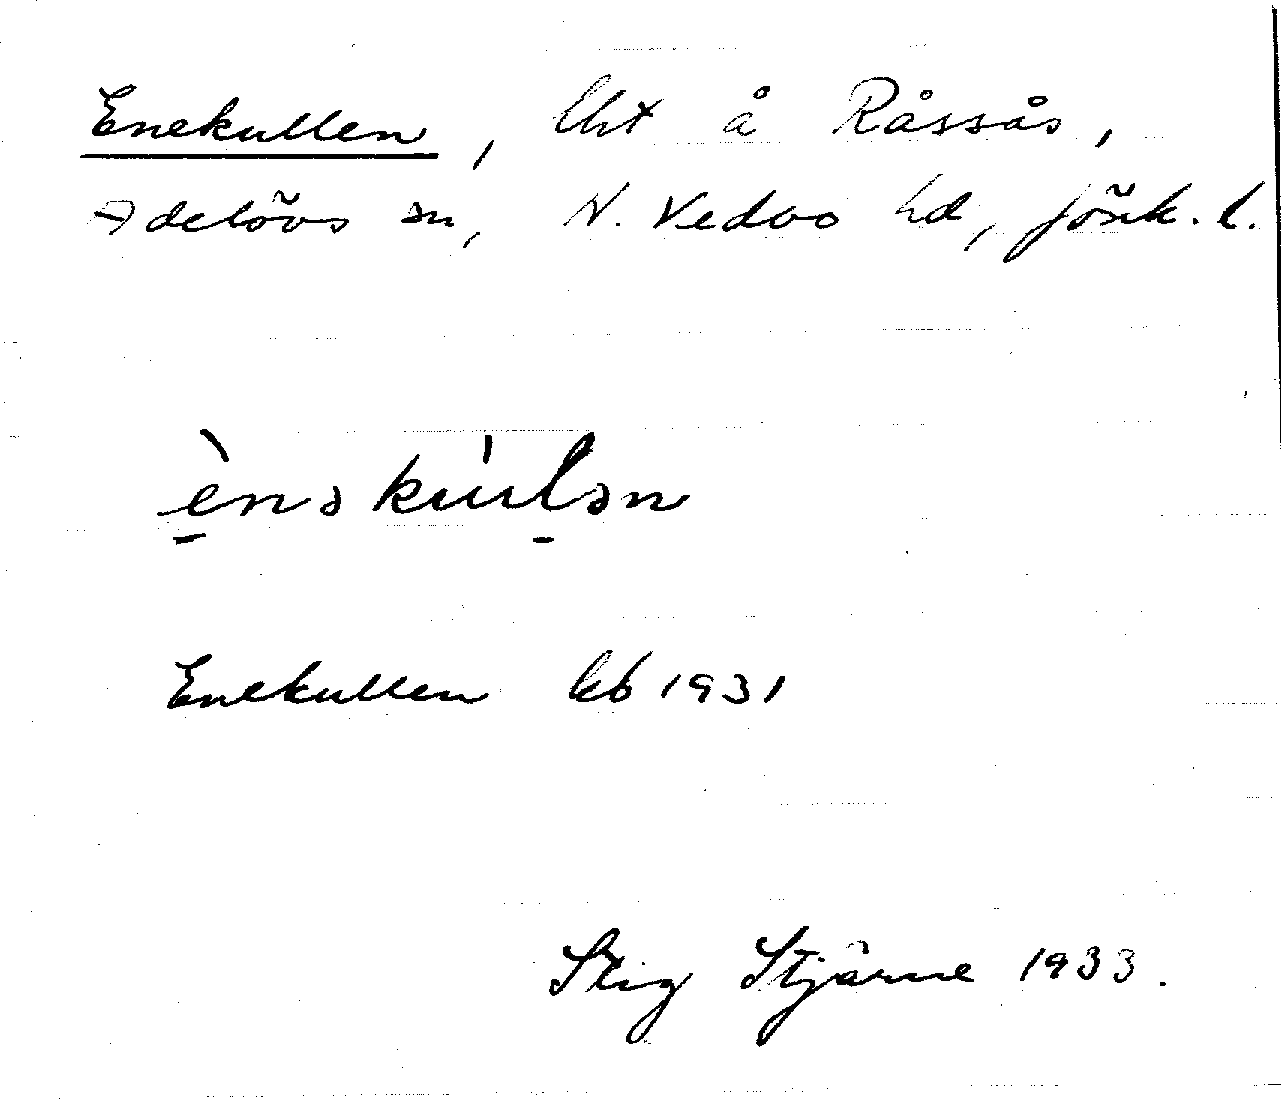 Enekullen, lht å Råssås,
Adelövs sn, N. Vedbo hd, Jönk. l.
ènəkúlən
Enekullen kb 1931
Stig Stjärne 1933.